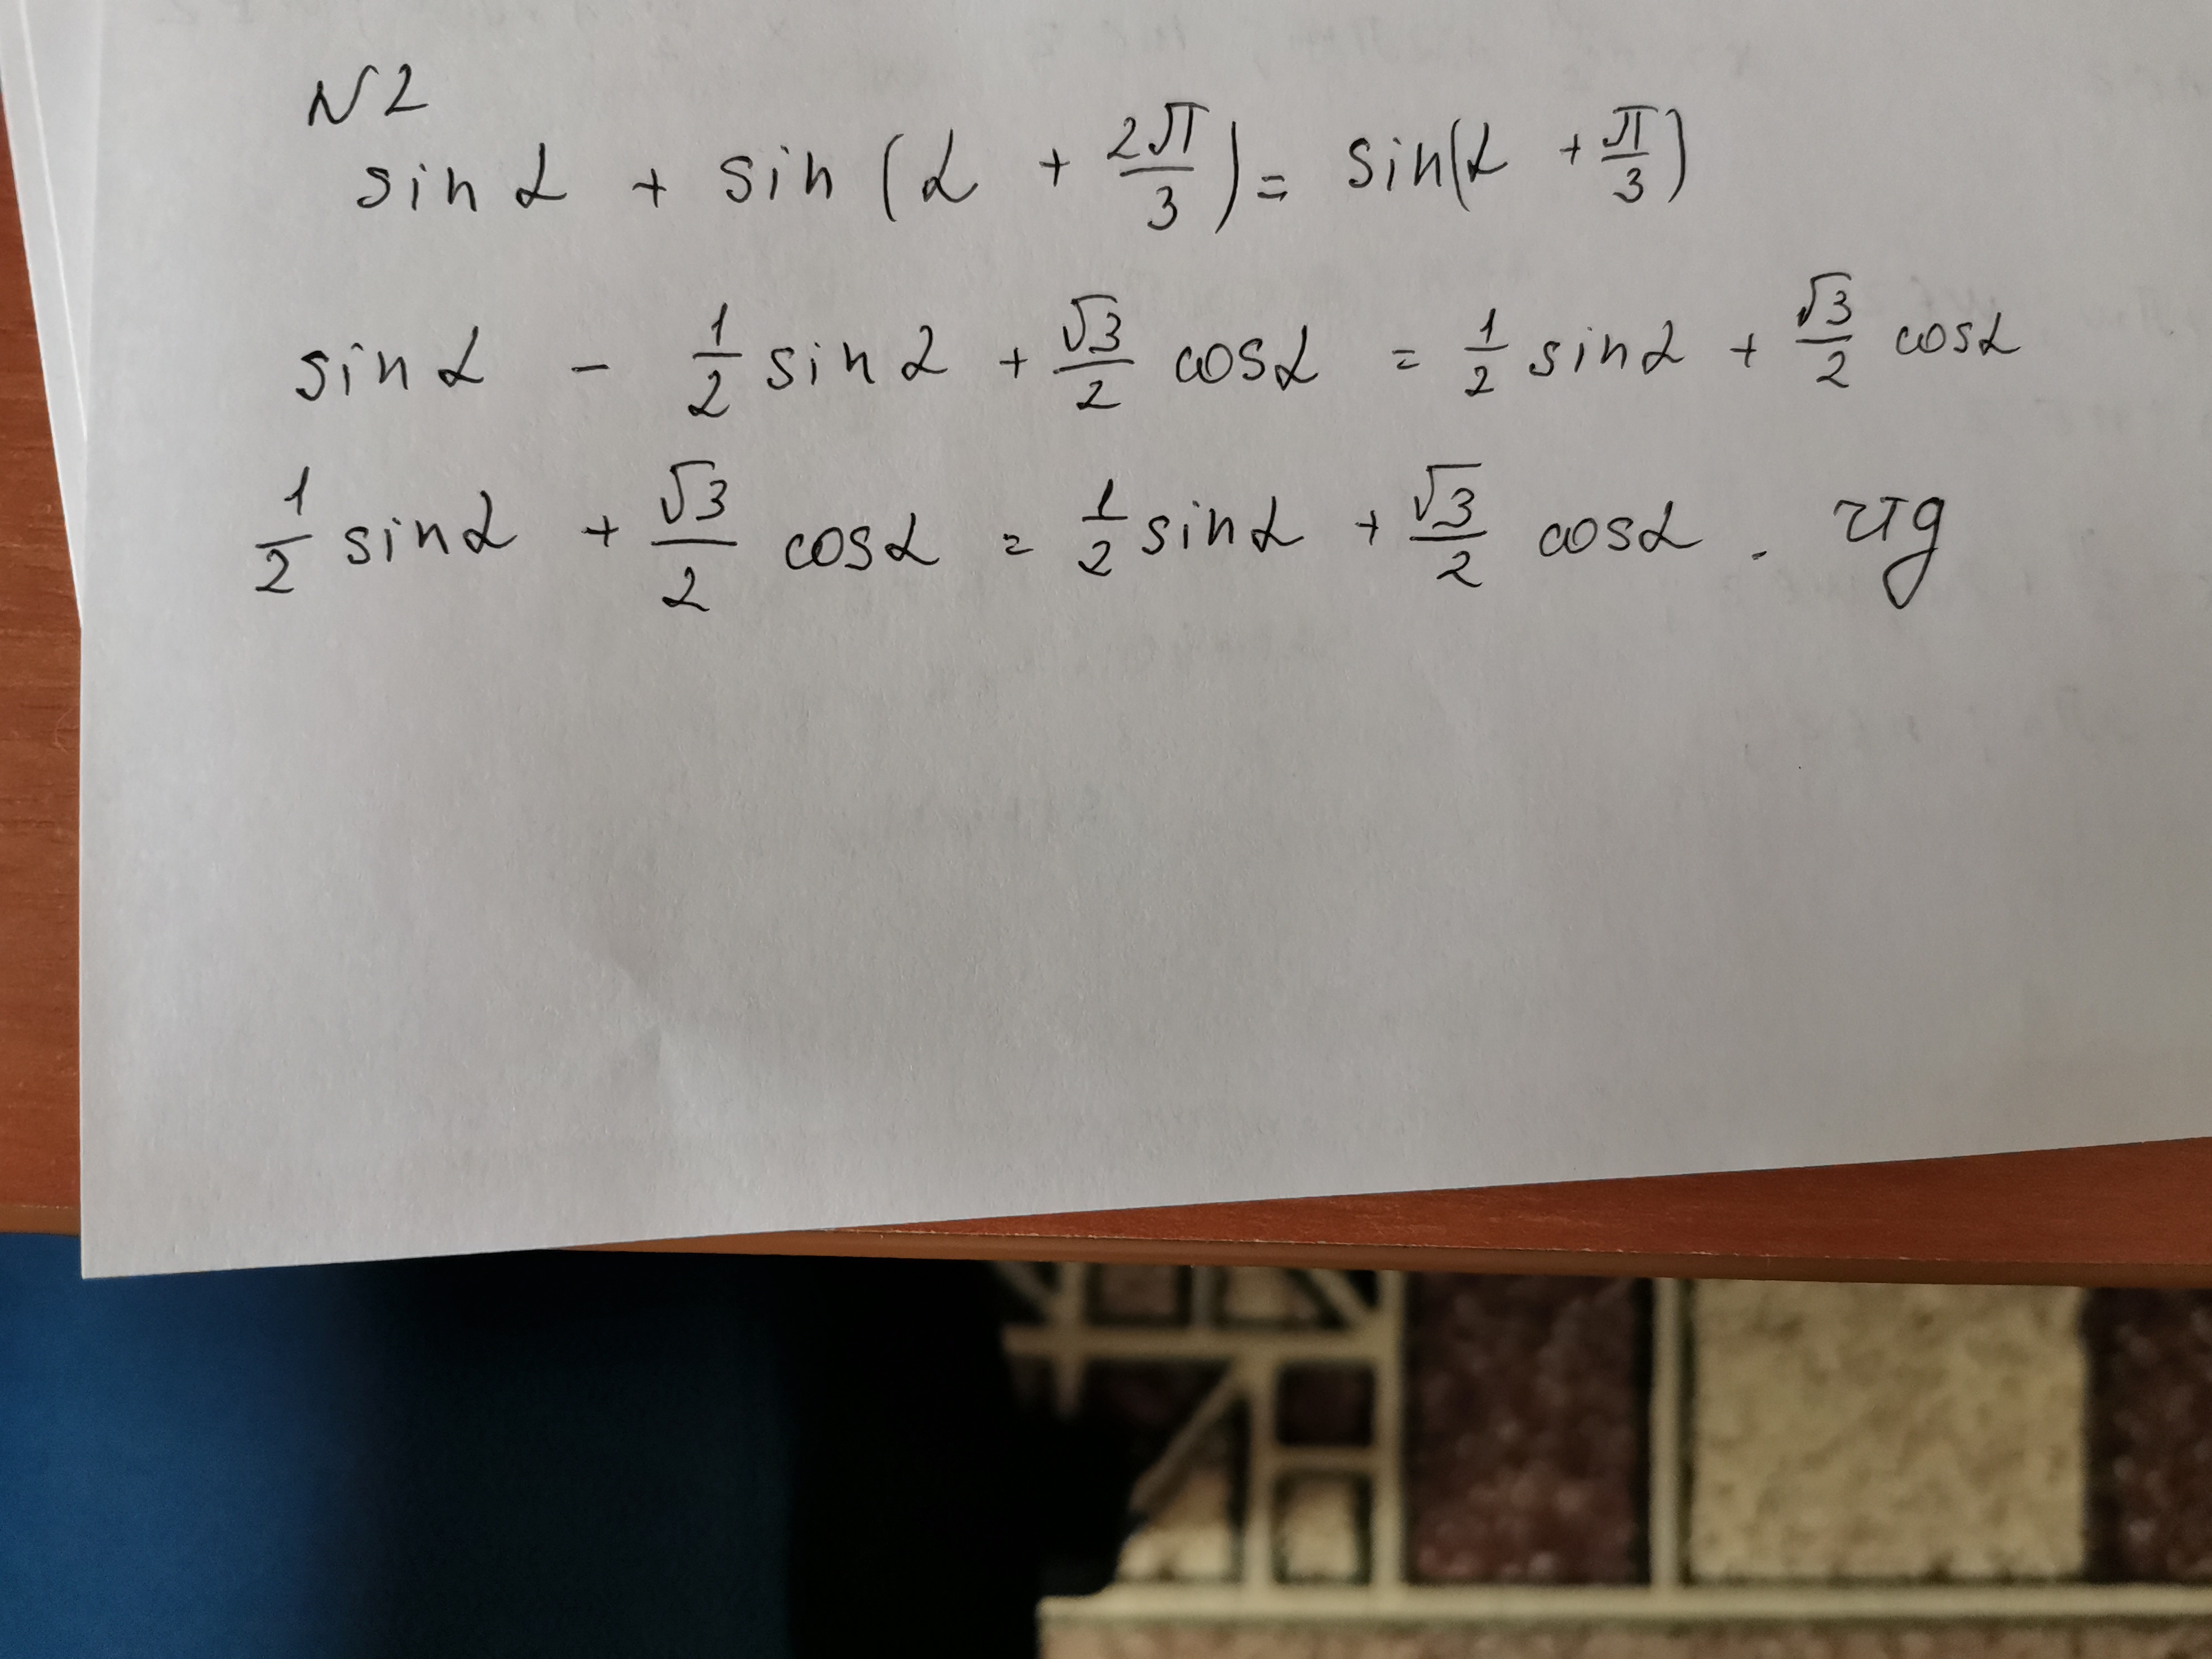 N2
sin α + sin (α + 2π/3) = sin(α + π/3)
sin α - 1/2 sin α + √3/2 cos α = 1/2 sin α + √3/2 cos α
1/2 sin α + √3/2 cos α = 1/2 sin α + √3/2 cos α .